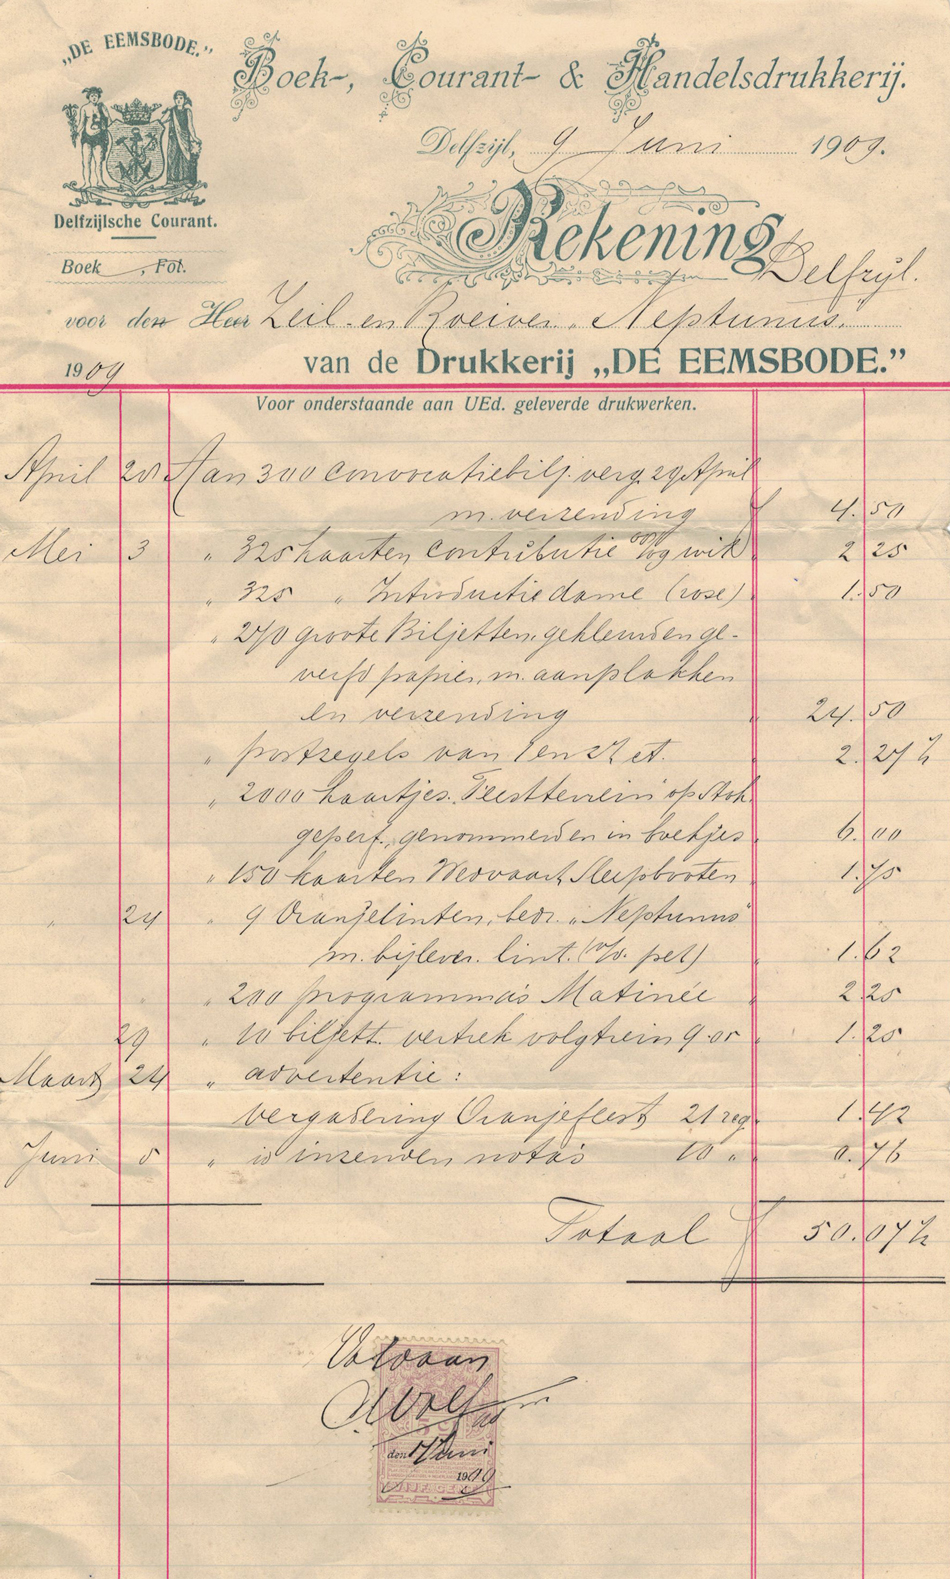 „DE EEMSBODE.”
Boek-, Courant- & Handelsdrukkerij.
Delfzijl, 9 Juni 1909.
Delfzijlsche Courant.
Rekening
Delfzijl.
Boek , Fol.
voor den Heer Zeil- en Roeiver. „Neptunus”
1909
van de Drukkerij „DE EEMSBODE.”
Voor onderstaande aan UEd. geleverde drukwerken.
April 20 Aan 300 convocatiebilj. verg. 29 April
m. verzending f 4.50
Mei 3 „ 325 kaarten contributie 2 25
„ 325 „ Introductie dame (rose) 1.50
„ 250 groote Biljetten, gekleurd en ge-
verfd papier, m. aanplakken
en verzending 24.50
„ postzegels van 1 en 2½ ct. 2.27½
„ 2000 kaartjes Feestterrein op Stok
geperf., genommerd en in boekjes 6.00
„ 150 kaarten Wedvaart Sleepbooten 1.75
„ 24 „ 9 Oranjelinten, bedr. „Neptunus”
m. bijlever. lint. (v/d. pet) 1.62
„ 200 programma's Matinée 2.25
29 „ 10 biljett. vertrek volgtrein 9.05 1.25
Maart 24 „ advertentie:
vergadering Oranjefeest 21 reg. 1.42
Juni 5 „ id inzenden nota's 10 „ 0.76
Totaal f 50.07½
Voldaan
den Juni
1909